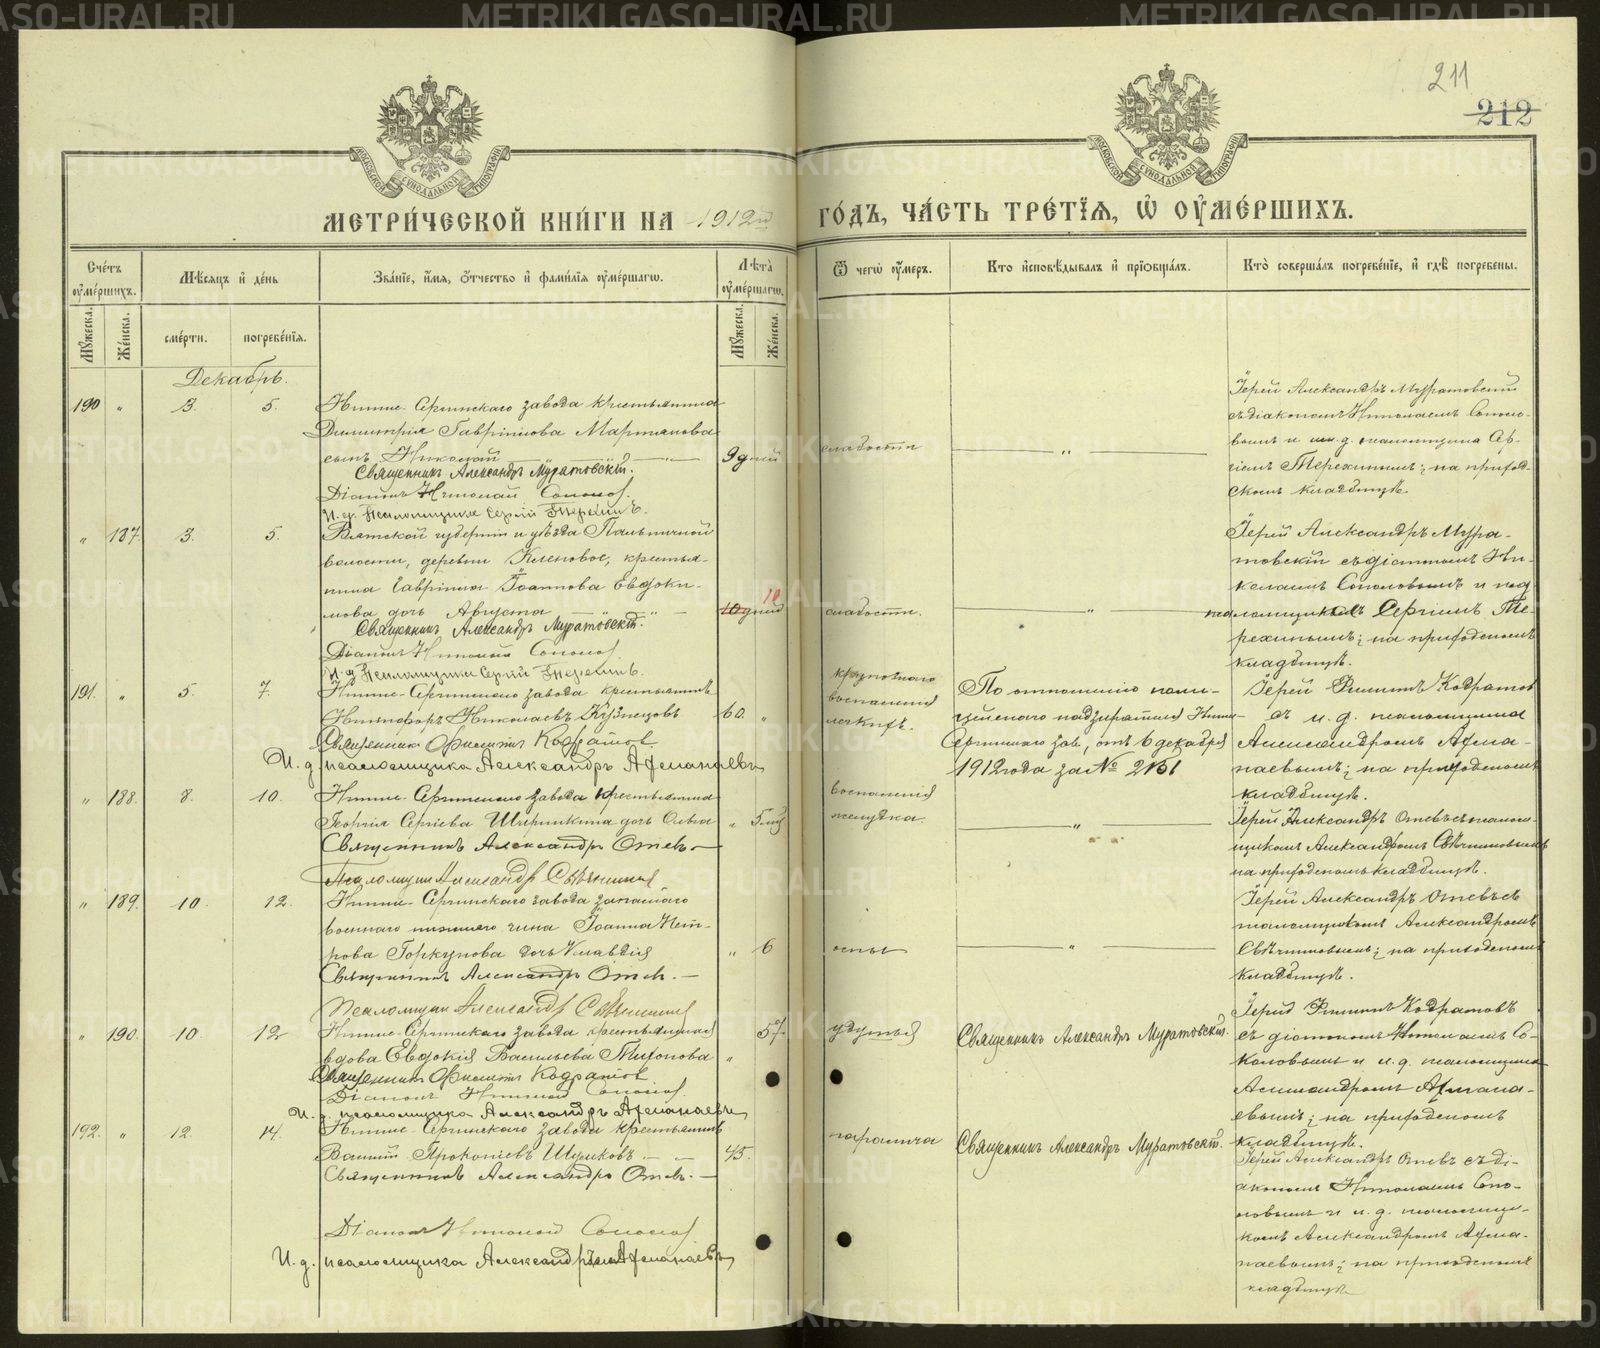 211
212
МОСКОВСКОЙ СѴНОДАЛЬНОЙ ТИПОГРАФІИ
МОСКОВСКОЙ СѴНОДАЛЬНОЙ ТИПОГРАФІИ
МЕТРИ́ЧЕСКОЙ КНИ́ГИ НА 1912й ГО́ДЪ, ЧА́СТЬ ТРЕ́ТІѦ, Ѡ҆ ОУ҆МЕ́РШИХЪ.
Сче́тъ оу҆ме́ршихъ.
Мѣ́сяцъ и҆ де́нь
Зва́ніе, и҆́мя, ѻ҆́тчество и҆ фами́лія оу҆ме́ршагѡ.
Лѣ́та оу҆ме́ршагѡ.
Ѿ чегѡ̀ оу҆́меръ.
Кто̀ и҆сповѣ́дывалъ и҆ прїѡбща́лъ.
Кто̀ соверша́лъ погребе́ніе, и҆ гдѣ̀ погребе́ны.
Му́жеска.
Же́нска.
сме́рти.
погребе́нія.
Му́жеска.
Же́нска.
Декабрь.
190 " 3. 5.
Нижне-Сергинскаго завода крестьянина
Димитрія Гавріилова Мартьянова
сынъ Николай 9 дней
слабости "
Священникъ Александръ Муратовскій.
Діаконъ Николай Соколов.
И. д. Псаломщика Сергій Терехинъ.
Іерей Александръ Муратовскій
съ діакономъ Николаемъ Соколо-
вымъ и и. д. псаломщика Сер-
гіемъ Терехинымъ; на приход-
скомъ кладбищѣ.
" 187. 3. 5.
Вятской губерніи и уѣзда
волости, деревни Кленовое, крестья-
нина Гавріила Іоаннова Евдоки-
мова дочь Августа 10 дней 10
слабости. "
Священникъ Александръ Муратовскій.
Діаконъ Николай Соколов.
И. д. Псаломщика Сергій Терехинъ.
Іерей Александръ Мура-
товскій съ діакономъ Ни-
колаемъ Соколовымъ и и. д.
псаломщика Сергіемъ Те-
рехинымъ; на приходскомъ
кладбищѣ.
191. " 5. 7.
Нижне-Сергинскаго завода крестьянинъ
Никифоръ Николаевъ Кузнецовъ 60. "
Священникъ Филиппъ Кодратов
И. д. псаломщика Александръ Афанасьевъ
крупознаго
воспаленія
легкихъ.
По отношенію поли-
цейскаго надзирателя Нижне-
Сергинскаго зав., отъ 6 декабря
1912 года за №
Іерей Филиппъ Кодратов
съ и. д. псаломщика
Александромъ Афана-
сьевымъ; на приходскомъ
кладбищѣ.
" 188. 8. 10.
Нижне-Сергинскаго завода крестьянина
Георгія Сергіева дочь Ольга " 5 мѣс
Священникъ Александръ Отевъ
Псаломщик Александр Свѣчников
воспаленія
желудка.
"
Іерей Александръ Отевъ съ псалом-
щикомъ Александромъ Свѣчниковымъ
на приходскомъ кладбищѣ.
" 189. 10. 12.
Нижне-Сергинскаго завода запаснаго
военнаго нижняго чина Іоанна Пет-
рова Горкунова дочь Клавдія " 6
Священникъ Александръ Отев.
Псаломщик Александр Свѣчников
оспы "
Іерей Александръ Отевъ съ
псаломщикомъ Александромъ
Свѣчниковымъ; на приходскомъ
кладбищѣ.
" 190. 10. 12
Нижне-Сергинскаго завода крестьянская
вдова Евдокія Васильева Тихонова " 57.
Священникъ Филиппъ Кодратов
Діаконъ Николай Соколов.
И. д. псаломщика Александръ Афанасьевъ
удушья
Священникъ Александръ Муратовскій.
Іерей Филиппъ Кодратовъ
съ діакономъ Николаемъ Со-
коловымъ и и. д. псаломщика
Александромъ Афана-
сьевымъ; на приходскомъ
кладбищѣ.
192. " 12. 14.
Нижне-Сергинскаго завода крестьянинъ
Василій Прокопіевъ Шуликовъ 45.
Священникъ Александръ Отев.
Діаконъ Николай Соколов
И. д. псаломщика Александръ Афанасьевъ
паралича
Священникъ Александръ Муратовскій.
Іерей Александръ Отевъ съ ді-
акономъ Николаемъ Соко-
ловымъ и и. д. псаломщи-
комъ Александромъ Афана-
сьевымъ; на приходскомъ
кладбищѣ